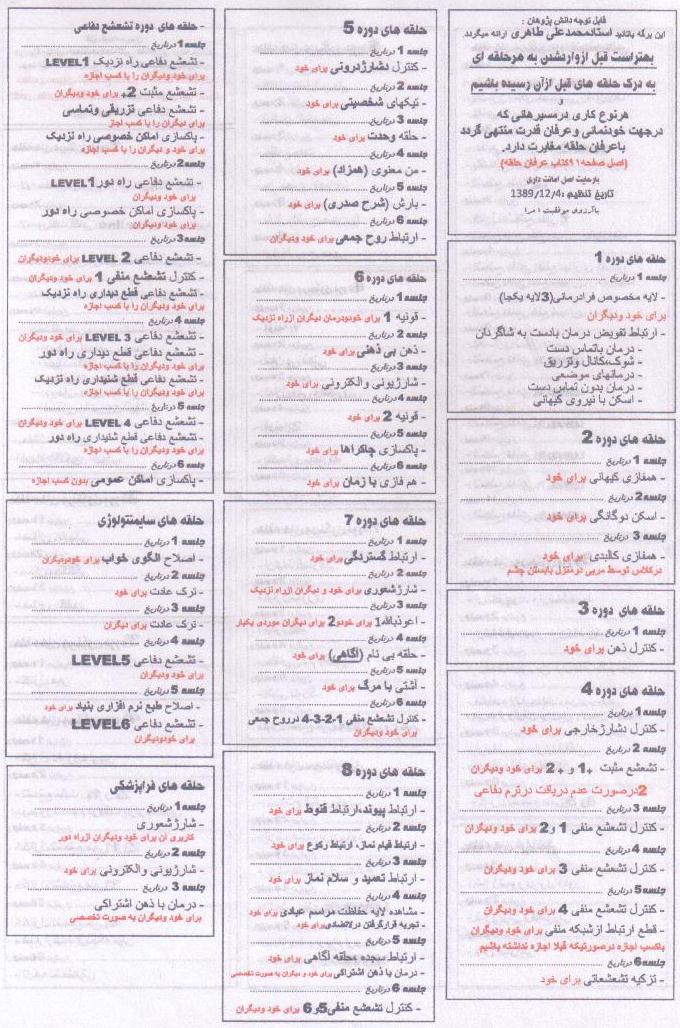 قابل توجه دانش پژوهان :
این برگه باتائید استادمحمدعلی طاهری ارائه میگردد
بهتراست قبل ازواردشدن به هرحلقه ای
به درک حلقه های قبل ازآن رسیده باشیم
و
هرنوع کاری درمسیرهائی که
درجهت خودنمائی وعرفان قدرت منتهی گردد
باعرفان حلقه مغایرت دارد.
(اصل صفحه۱۱۹کتاب عرفان حلقه)
بارعایت اصل امانت داری
تاریخ تنظیم :1389/12/4
باآرزوی موفقیت
حلقه های دوره 1
جلسه 1 درتاریخ
- لایه مخصوص فرادرمانی(3لایه یکجا)
برای خود ودیگران
- ارتباط تفویض درمان بادست به شاگردان
- درمان باتماس دست
- شوک،کانال وتزریق
- درمانهای موضعی
- درمان بدون تماس دست
- اسکن با نیروی کیهانی
حلقه های دوره 2
جلسه 1 درتاریخ
- همفازی کیهانی برای خود
جلسه2 درتاریخ
- اسکن دوگانگی برای خود
جلسه 3 درتاریخ
- همفازی کالبدی برای خود
درکلاس توسط مربی درمنزل بابستن چشم
حلقه های دوره 3
جلسه 1 درتاریخ
- کنترل ذهن برای خود
حلقه های دوره 4
جلسه1 درتاریخ
- کنترل دشارژخارجی برای خود
جلسه 2 درتاریخ
- تشعشع مثبت 1+ و 2+ برای خود ودیگران
2درصورت عدم دریافت درترم دفاعی
جلسه 3 درتاریخ
- کنترل تشعشع منفی 1 و2 برای خود ودیگران
جلسه 4 درتاریخ
- کنترل تشعشع منفی 3 برای خود ودیگران
جلسه5 درتاریخ
- کنترل تشعشع منفی 4 برای خود ودیگران
- قطع ارتباط ازشبکه منفی برای خود ودیگران
باکسب اجازه درصورتیکه قبلا اجازه نداشته باشیم
جلسه6 درتاریخ
- تزکیه تشعشعاتی برای خود
حلقه های دوره 5
جلسه 1 درتاریخ
- کنترل دشارژدرونی برای خود
جلسه 2 درتاریخ
- تیکهای شخصیتی برای خود
جلسه 3 درتاریخ
- حلقه وحدت برای خود
جلسه 4 درتاریخ
- من معنوی (همزاد) برای خود
جلسه 5 درتاریخ
- بارش (شرح صدری) برای خود
جلسه 6 درتاریخ
- ارتباط روح جمعی برای خود ودیگران
حلقه های دوره 6
جلسه1 درتاریخ
- قونیه 1 برای خودودرمان دیگران ازراه نزدیک
جلسه 2 درتاریخ
- ذهن بی ذهنی برای خود
جلسه 3 درتاریخ
- شارژیونی والکترونی برای خود
جلسه 4 درتاریخ
- قونیه 2 برای خود
جلسه 5 درتاریخ
- پاکسازی چاکراها برای خود
جلسه 6 درتاریخ
- هم فازی با زمان برای خود
حلقه های دوره 7
جلسه 1 درتاریخ
- ارتباط گستردگی برای خود
جلسه 2 درتاریخ
- شارژشعوری برای خود و دیگران ازراه نزدیک
جلسه 3 درتاریخ
- اعوذباالله1 برای خودو2 برای دیگران موردی یکبار
جلسه 4 درتاریخ
- حلقه بی نام (آگاهی) برای خود
جلسه 5 درتاریخ
- آشتی با مرگ برای خود
جلسه 6 درتاریخ
- کنترل تشعشع منفی 1-2-3-4 درروح جمعی
برای خود ودیگران
حلقه های دوره 8
جلسه 1 درتاریخ
- ارتباط پیوند،ارتباط قنوط برای خود
جلسه 2 درتاریخ
- ارتباط قیام نماز، ارتباط رکوع برای خود
جلسه 3 درتاریخ
- ارتباط تعمید و سلام نماز برای خود
جلسه 4 درتاریخ
- مشاهده لایه حفاظت مراسم عبادی برای خود
- تجربه قرارگرفتن درلاتضادی برای خود
جلسه 5 درتاریخ
- ارتباط سجده ،حلقه آگاهی برای خود
- درمان با ذهن اشتراکی برای خود و دیگران به صورت تخصصی
جلسه 6 درتاریخ
- کنترل تشعشع منفی5و6 برای خود ودیگران
- حلقه های دوره تشعشع دفاعی
جلسه 1 درتاریخ
- تشعشع دفاعی راه نزدیک LEVEL1
برای خود ودیگران را با کسب اجازه
- تشعشع مثبت 2+ برای خود ودیگران
- تشعشع دفاعی تزریقی وتماسی
برای دیگران را با کسب اجاز
- پاکسازی اماکن خصوصی راه نزدیک
برای خود و دیگران را با کسب اجازه
جلسه2 درتاریخ
- تشعشع دفاعی راه دور LEVEL1
برای خود ودیگران
- پاکسازی اماکن خصوصی راه دور
برای خود ودیگران
جلسه3 درتاریخ
- تشعشع دفاعی LEVEL 2 برای خودودیگران
- کنترل تشعشع منفی 1 برای خود ودیگران
- تشعشع دفاعی قطع دیداری راه نزدیک
برای خود ودیگران را با کسب اجازه
جلسه 4 درتاریخ
- تشعشع دفاعی LEVEL 3 برای خود ودیگران
- تشعشع دفاعی قطع دیداری راه دور
برای خود ودیگران را با کسب اجازه
- تشعشع دفاعی قطع شنیداری راه نزدیک
برای خود ودیگران را با کسب اجازه
جلسه 5 درتاریخ
- تشعشع دفاعی LEVEL 4 برای خود ودیگران
- تشعشع دفاعی قطع شنیداری راه دور
برای خود ودیگران را با کسب اجازه
جلسه6 درتاریخ
- پاکسازی اماکن عمومی بدون کسب اجازه
حلقه های سایمنتولوژی
جلسه 1 درتاریخ
- اصلاح الگوی خواب برای خودودیگران
جلسه 2 درتاریخ
- ترک عادت برای خود
جلسه 3 درتاریخ
- ترک عادت برای دیگران
جلسه 4 درتاریخ
- تشعشع دفاعی LEVEL5
برای خود ودیگران
جلسه 5 درتاریخ
- اصلاح طبع نرم افزاری بنیاد برای خود
- تشعشع دفاعی LEVEL6
برای خودودیگران
حلقه های فراپزشکی
جلسه 1 درتاریخ
- شارژشعوری
کاربری آن برای خود ودیگران ازراه دور
جلسه 2 درتاریخ
- شارژیونی والکترونی برای خود
جلسه 3 درتاریخ
- درمان با ذهن اشتراکی
برای خود ودیگران به صورت تخصصی